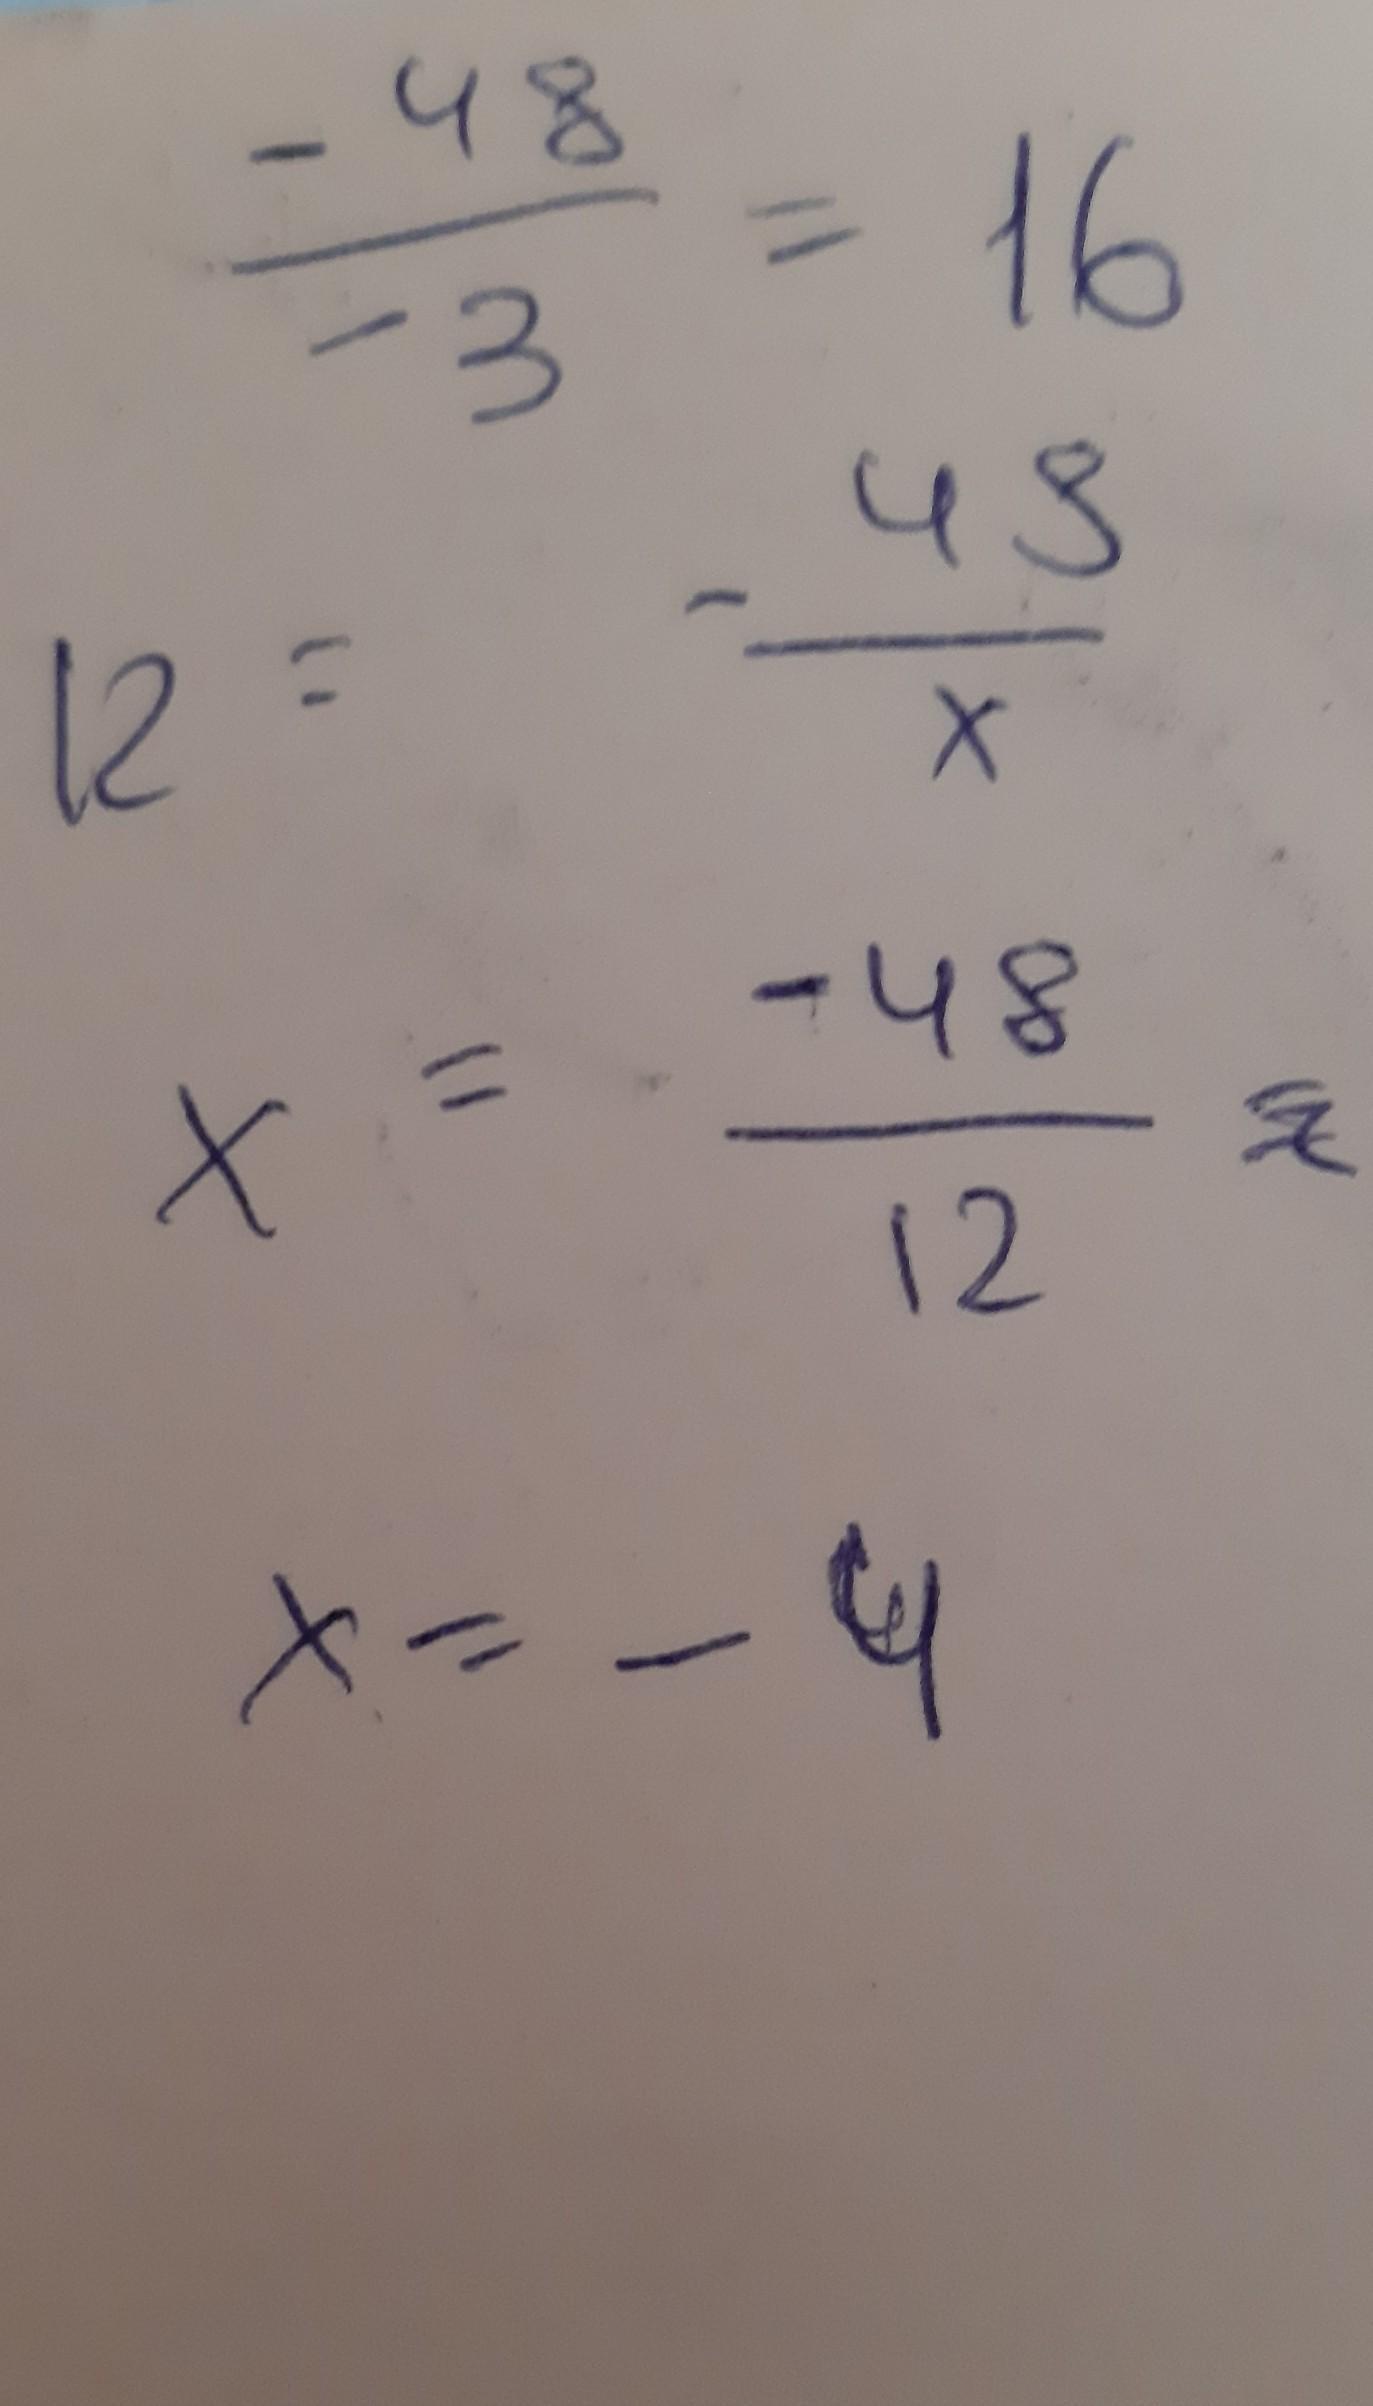 -48
-3
= 16
12 = - 48
x
x = -48
12
=
x = - 4